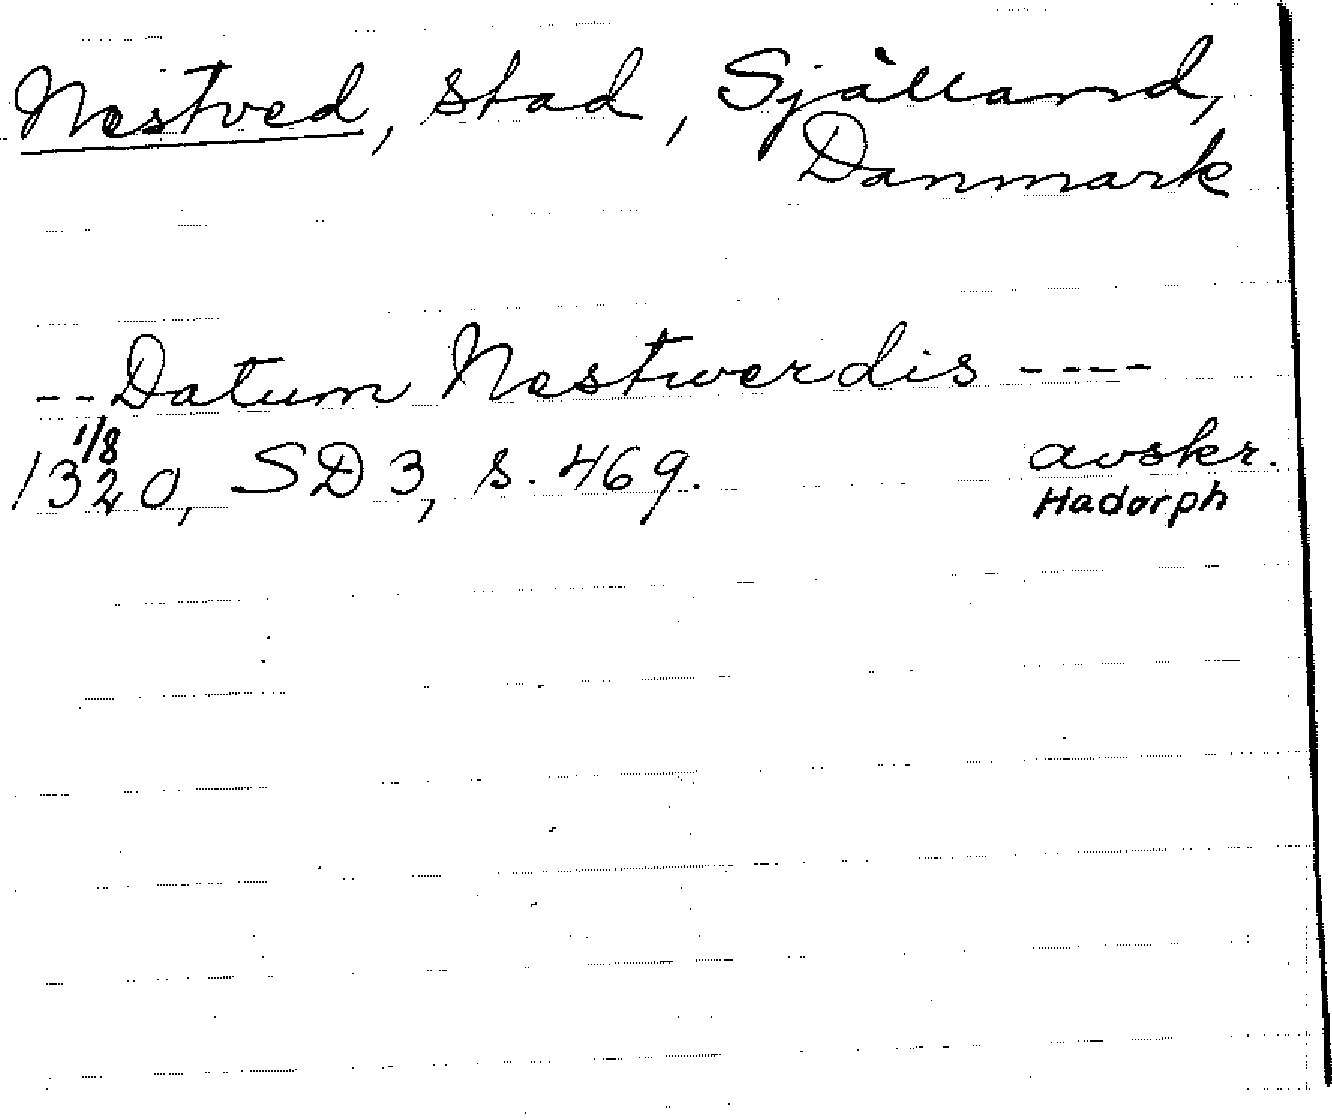 Nestved, stad, Själland,
Danmark
-- Datum Nestwerdis ----
1/8
1320, SD 3, s. 469. avskr.
Hadorph